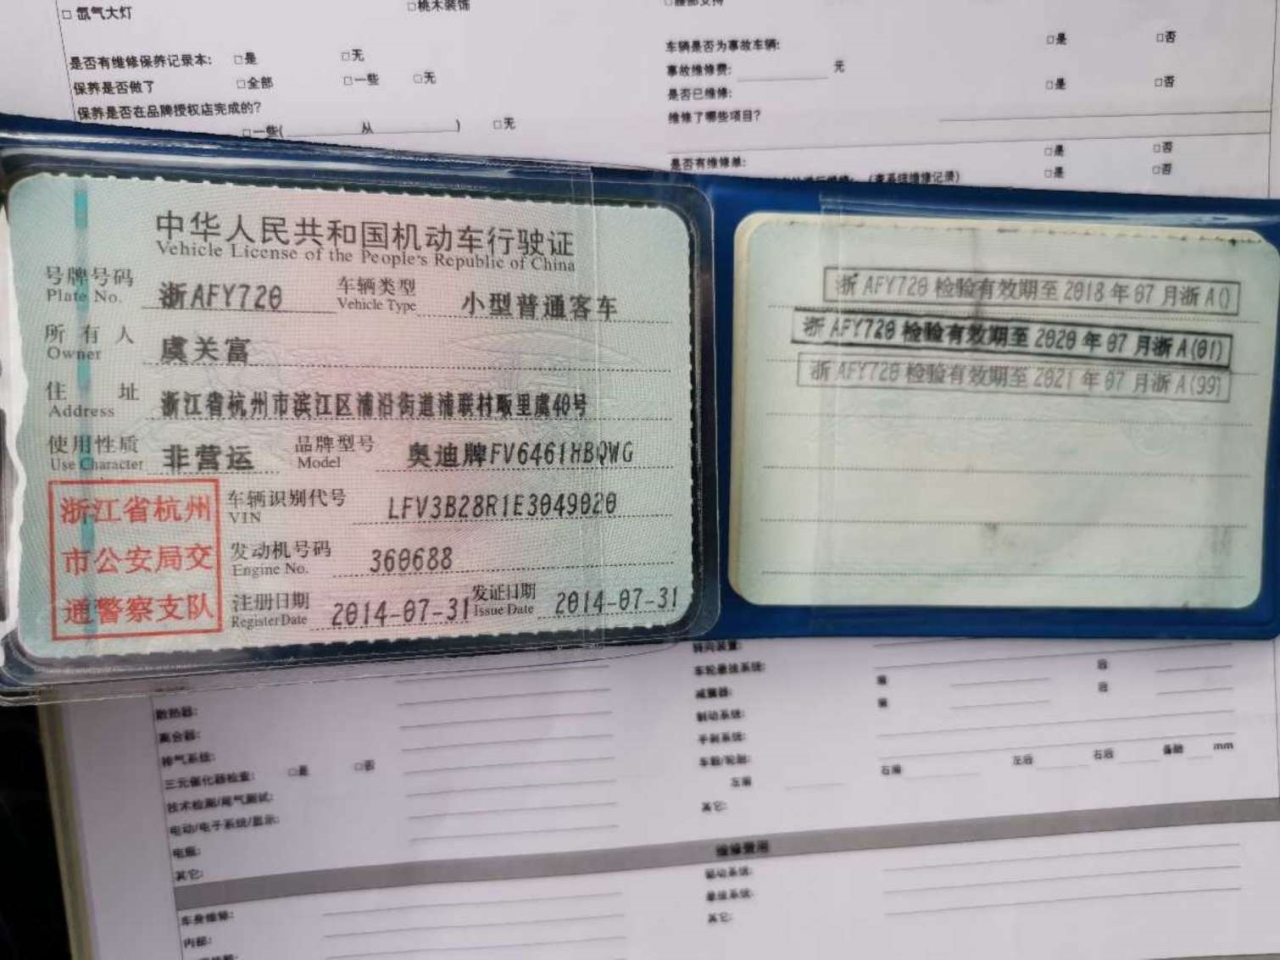 □ 氙气大灯
□桃木装饰
是否有维修保养记录本: □是 □无
保养是否做了 □全部 □一些 □无
保养是否在品牌授权店完成的?
□一些( 从 ) □无
车辆是否为事故车辆: □是 □否
事故维修费: 元
是否已维修: □是 □否
维修了哪些项目?
是否有维修单: □是 □否
(查系统维修记录) □是 □否
中华人民共和国机动车行驶证
Vehicle License of the People's Republic of China
号牌号码 浙AFY720 车辆类型 小型普通客车
Plate No. Vehicle Type
所有人 虞关富
Owner
住址 浙江省杭州市滨江区浦沿街道浦联村畈里虞40号
Address
使用性质 非营运 品牌型号 奥迪牌FV6461HBQWG
Use Character Model
浙江省杭州
市公安局交
通警察支队
车辆识别代号 LFV3B28R1E3049020
VIN
发动机号码 360688
Engine No.
注册日期 2014-07-31 发证日期 2014-07-31
Register Date Issue Date
浙AFY720 检验有效期至 2018 年 07 月浙A()
浙AFY720 检验有效期至 2020 年 07 月浙A(01)
浙AFY720 检验有效期至 2021 年 07 月浙A(99)
散热器:
离合器:
排气系统:
三元催化器检查: □是 □否
技术检测/尾气测试:
电动/电子系统/显示:
电瓶:
其它:
转向装置:
车轮悬挂系统: 前 后
减震器: 前 后
制动系统:
手刹系统:
车胎/轮胎:
左前 右前 左后 右后 备胎 mm
其它:
维修费用
车身维修:
内部:
驱动系统:
悬挂系统:
其它: